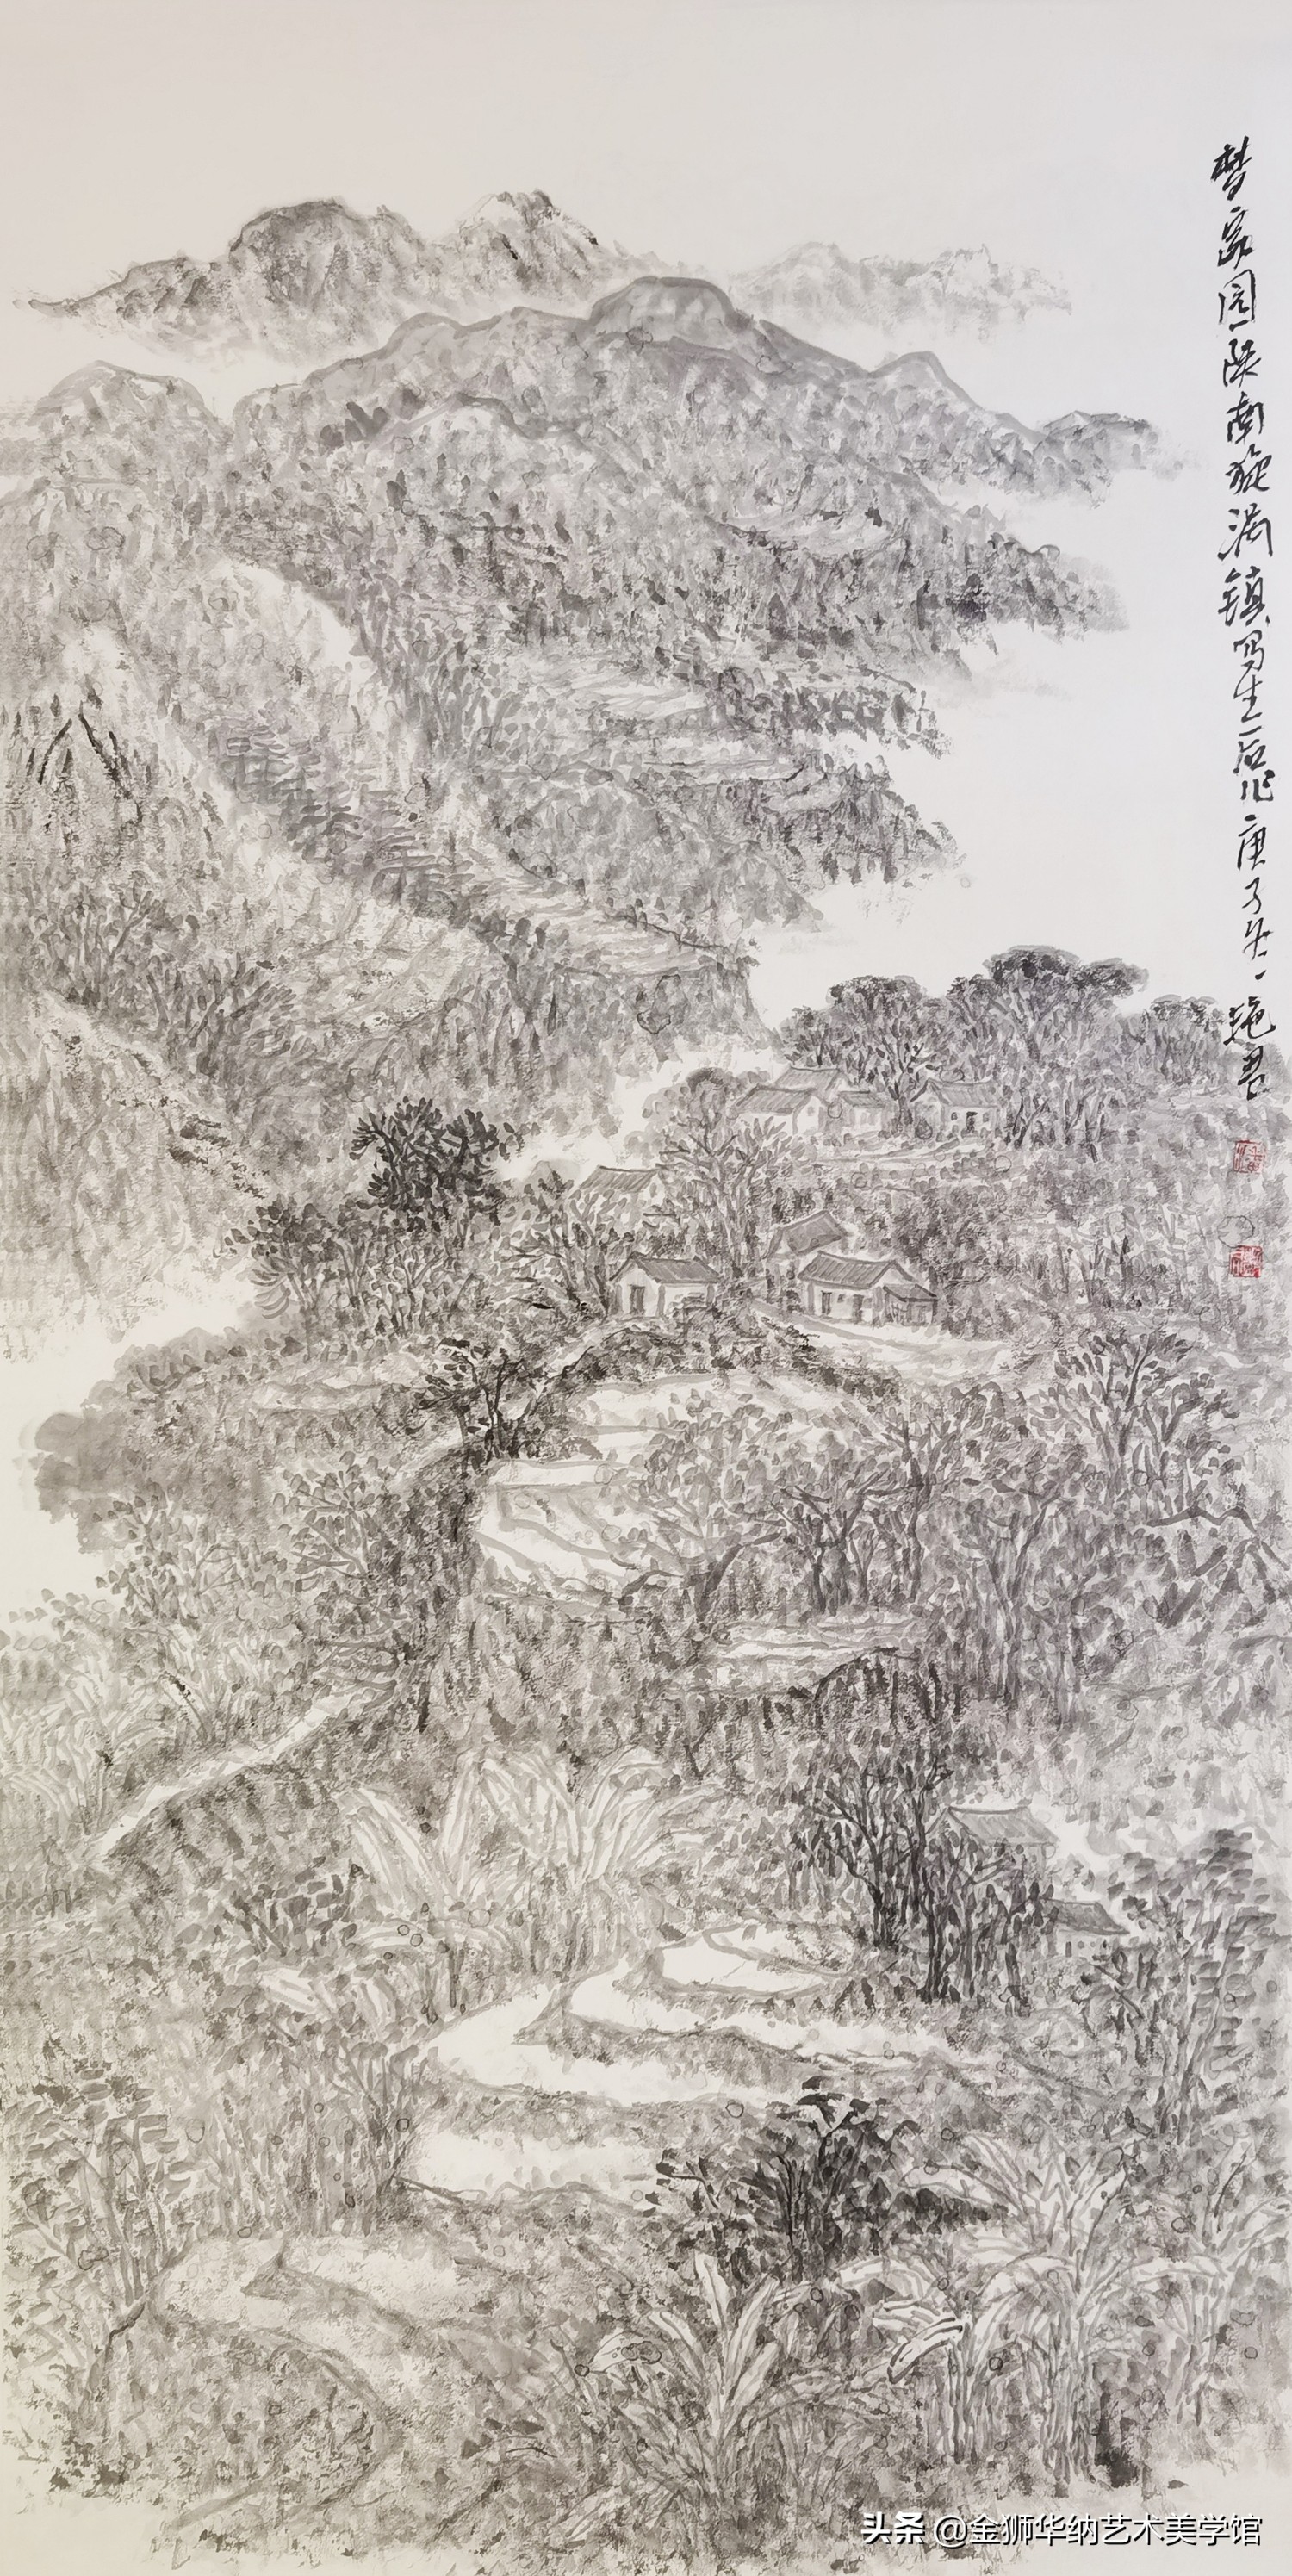 梦家园陕南旋涡镇写生后作庚子艳君
头条 @金狮华纳艺术美学馆